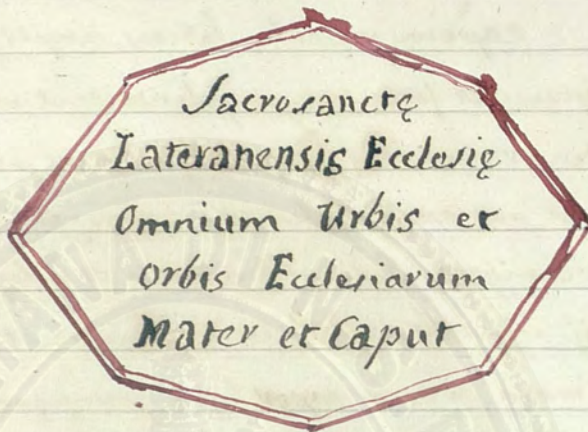 Sacrosanctę
Lateranensis Ecclesię
Omnium Urbis et
Orbis Ecclesiarum
Mater et Caput